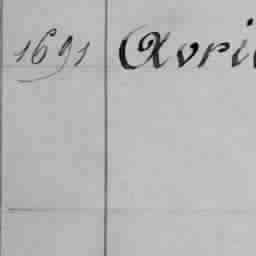 1691 Avri